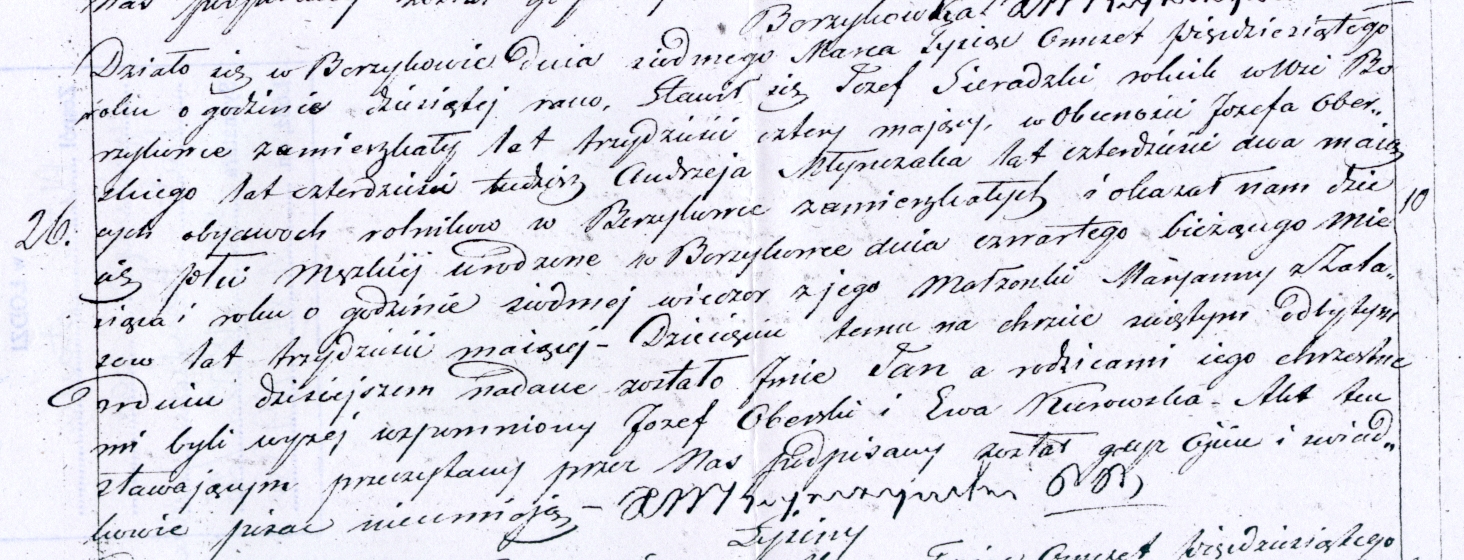 Borzykowska.
Działo się w Borzykowie dnia siódmego Marca Tysiąc Ośmset pięćdziesiątego
roku o godzinie dziesiątej rano, Stawił się Jozef Sieradzki rolnik w Wsi Bo
rzykowie zamieszkały lat trzydzieści cztery mający, w Obecności Jozefa Ober„
skiego lat czterdzieści tudzież Andrzeja Młynczaka lat czterdzieści dwa mają
26. cych obydwoch rolnikow w Borzykowie zamieszkałych i okazał nam dzie 10
cię płci Męzkiej urodzone w Borzykowie dnia czwartego bieżącego Mie
siąca i roku o godzinie siodmej wieczor z jego Małżonki Marjanny z Zata„
zow lat trzydzieści maiącej – Dziecięciu temu na chrzcie świętym odbytym
w dniu dzisiejszem nadane zostało Jmie Jan a rodzicami iego chrzestne
mi byli wyżej wspomniony Jozef Oberski i Ewa Kurowska. Akt ten
stawającym przeczytany przez Nas podpisany został gdyż Ojciec i świad„
kowie pisać nieumieją –
Łysiny
Tysiąc Ośmset pięćdziesiątego